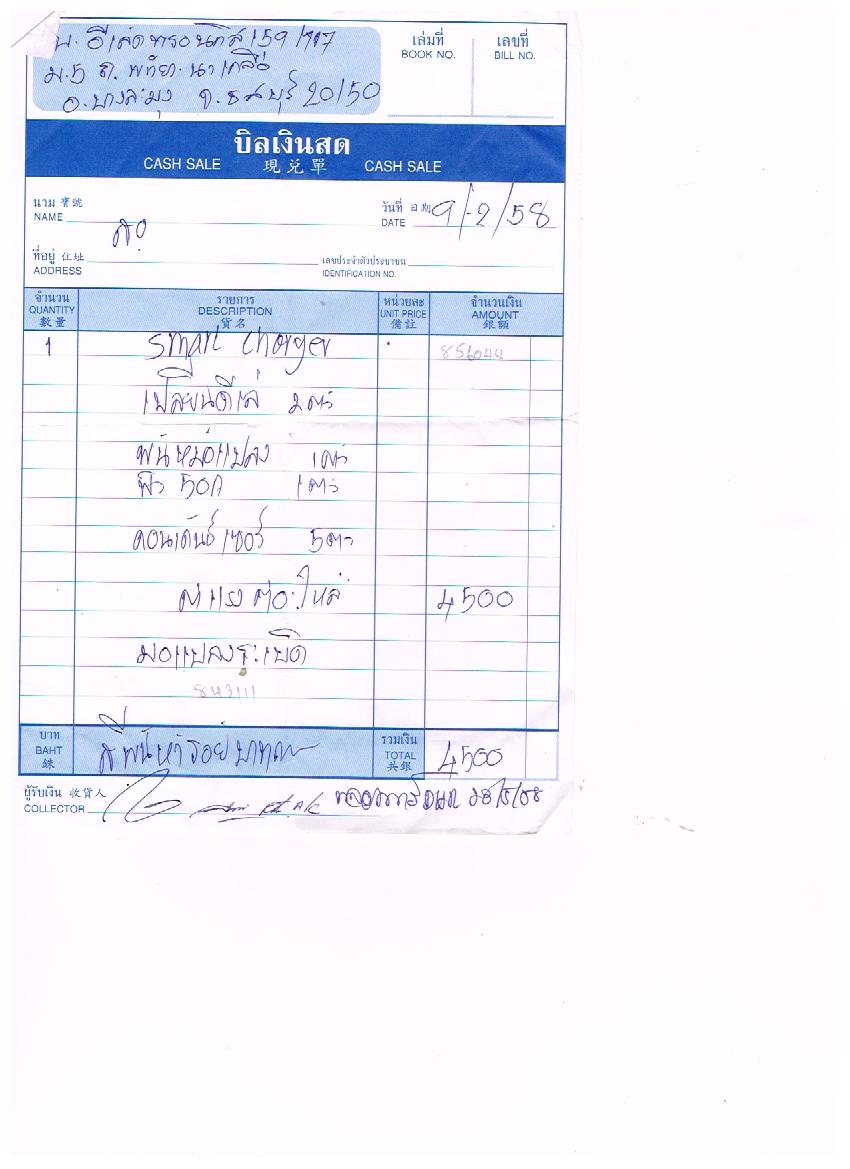 159/
ม.5 ถ. พัทยา.นาเกลือ
อ.บางละมุง จ.ชลบุรี 20150
เล่มที่
BOOK NO.
เลขที่
BILL NO.
บิลเงินสด
CASH SALE 現兌單 CASH SALE
นาม 賓號
NAME
วันที่ 日期 9/2/58
DATE
ที่อยู่ 住址
ADDRESS
เลขประจำตัวประชาชน
IDENTIFICATION NO.
จำนวน
QUANTITY
數量
รายการ
DESCRIPTION
貨名
หน่วยละ
UNIT PRICE
備註
จำนวนเงิน
AMOUNT
銀額
1 Smart Charger 856044
เปลี่ยนดีเล่ 2ตัว
พันหม้อแปลง 1ตัว
50A 1ตัว
คอนเด้นเซอร์ 5ตัว
4500
มอแปลงระเบิด
843111
บาท
BAHT
銖
สี่พันห้าร้อยบาท
รวมเงิน
TOTAL
共銀
4500
ผู้รับเงิน 收貨人
COLLECTOR